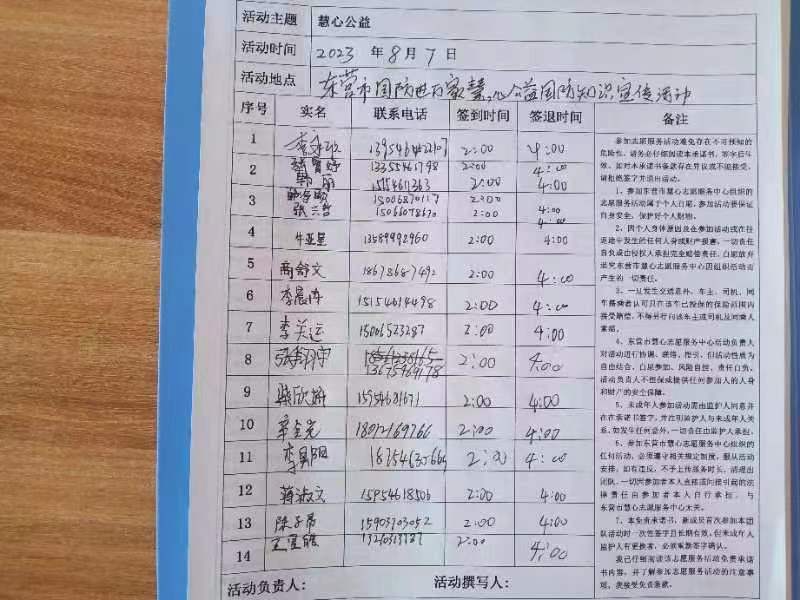 活动主题 慧心公益
活动时间 2023 年 8 月 7 日
活动地点 东营市国防进万家慧心公益国防知识宣传活动
序号 实名 联系电话 签到时间 签退时间 备注
1 2:00 4:00
2 13355461798 2:00 4:00
韩丽 2:00 4:00
3 15006870117 2:00 4:00
张兰哲 15066078670 2:00 4:00
4 牛亚星 13589992960 2:00 4:00
5 商舒文 18678687492 2:00 4:00
6 李晨涛 15154614498 2:00 4:00
7 李关运 15006523287 2:00 4:00
8 张翔宇 13675969178 2:00 4:00
9 柴欣妍 15954681671 2:00 4:00
10 2:00 4:00
11 2:00 4:00
12 蒋淑文 15954618506 2:00 4:00
13 陈子昂 15903703052 2:00 4:00
14 2:00 4:00
参加志愿服务活动难免存在不可预知的
危险性，请务必仔细阅读本承诺书，签字后生
效。如对本承诺书条款存在异议或不能接受，
请拒绝签字并退出活动。
1、参加东营市慧心志愿服务中心组织的
志愿服务活动属于个人自愿，参加活动要保证
自身安全，保护好个人财物。
2、因个人身体原因及在参加活动或在往
返途中发生的任何人身或财产损害，一切责任
自负或由侵权人承担完全赔偿责任，自愿放弃
追究东营市慧心志愿服务中心因组织活动而
产生的一切责任。
3、一旦发生交通意外，车主、司机、同
车搭乘者认可只在该车已投保的保险范围内
接受赔偿，不得另行向该车主或司机及同乘人
索赔。
4、东营市慧心志愿服务中心活动负责人
对活动进行协调、联络、指引，但活动性质为
自由结合、自愿参加、风险自担、责任自负，
活动负责人不担保或提供任何参加人的人身
和财产的安全保障。
5、未成年人参加活动需由监护人同意并
在本承诺书签字，并注明监护人与未成年人关
系，如发生任何意外，一切责任由监护人承担。
6、参加东营市慧心志愿服务中心组织的
任何活动，必须遵守相关规定制度，服从活动
安排，如有违反，不予上传服务时长，清理出
团队，一切因参加者本人直接或间接引起的法
律责任由参加者本人自行承担，与
东营市慧心志愿服务中心无关。
7、本免责承诺书，新成员首次参加本团
队活动时一次性签字且长期有效，但未成年人
监护人有更换者，必须重新签字确认。
我已仔细阅读该志愿服务活动免责承诺
书内容，并了解参加志愿服务活动的注意事
项，我接受免责条款。
活动负责人： 活动撰写人：